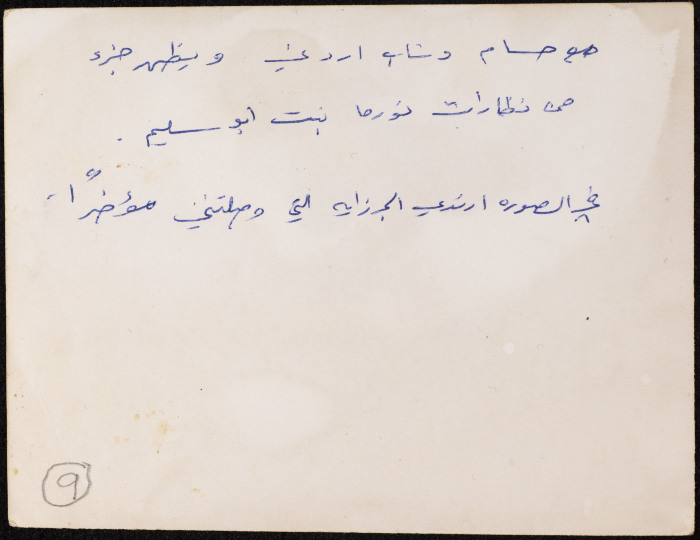 مع حسام وشاب اردني ويظهر جزء
من نظارات نورما بنت ابو سليم .
في الصوره ارتدي الجرزايه التي وصلتني مؤخرًا .
9